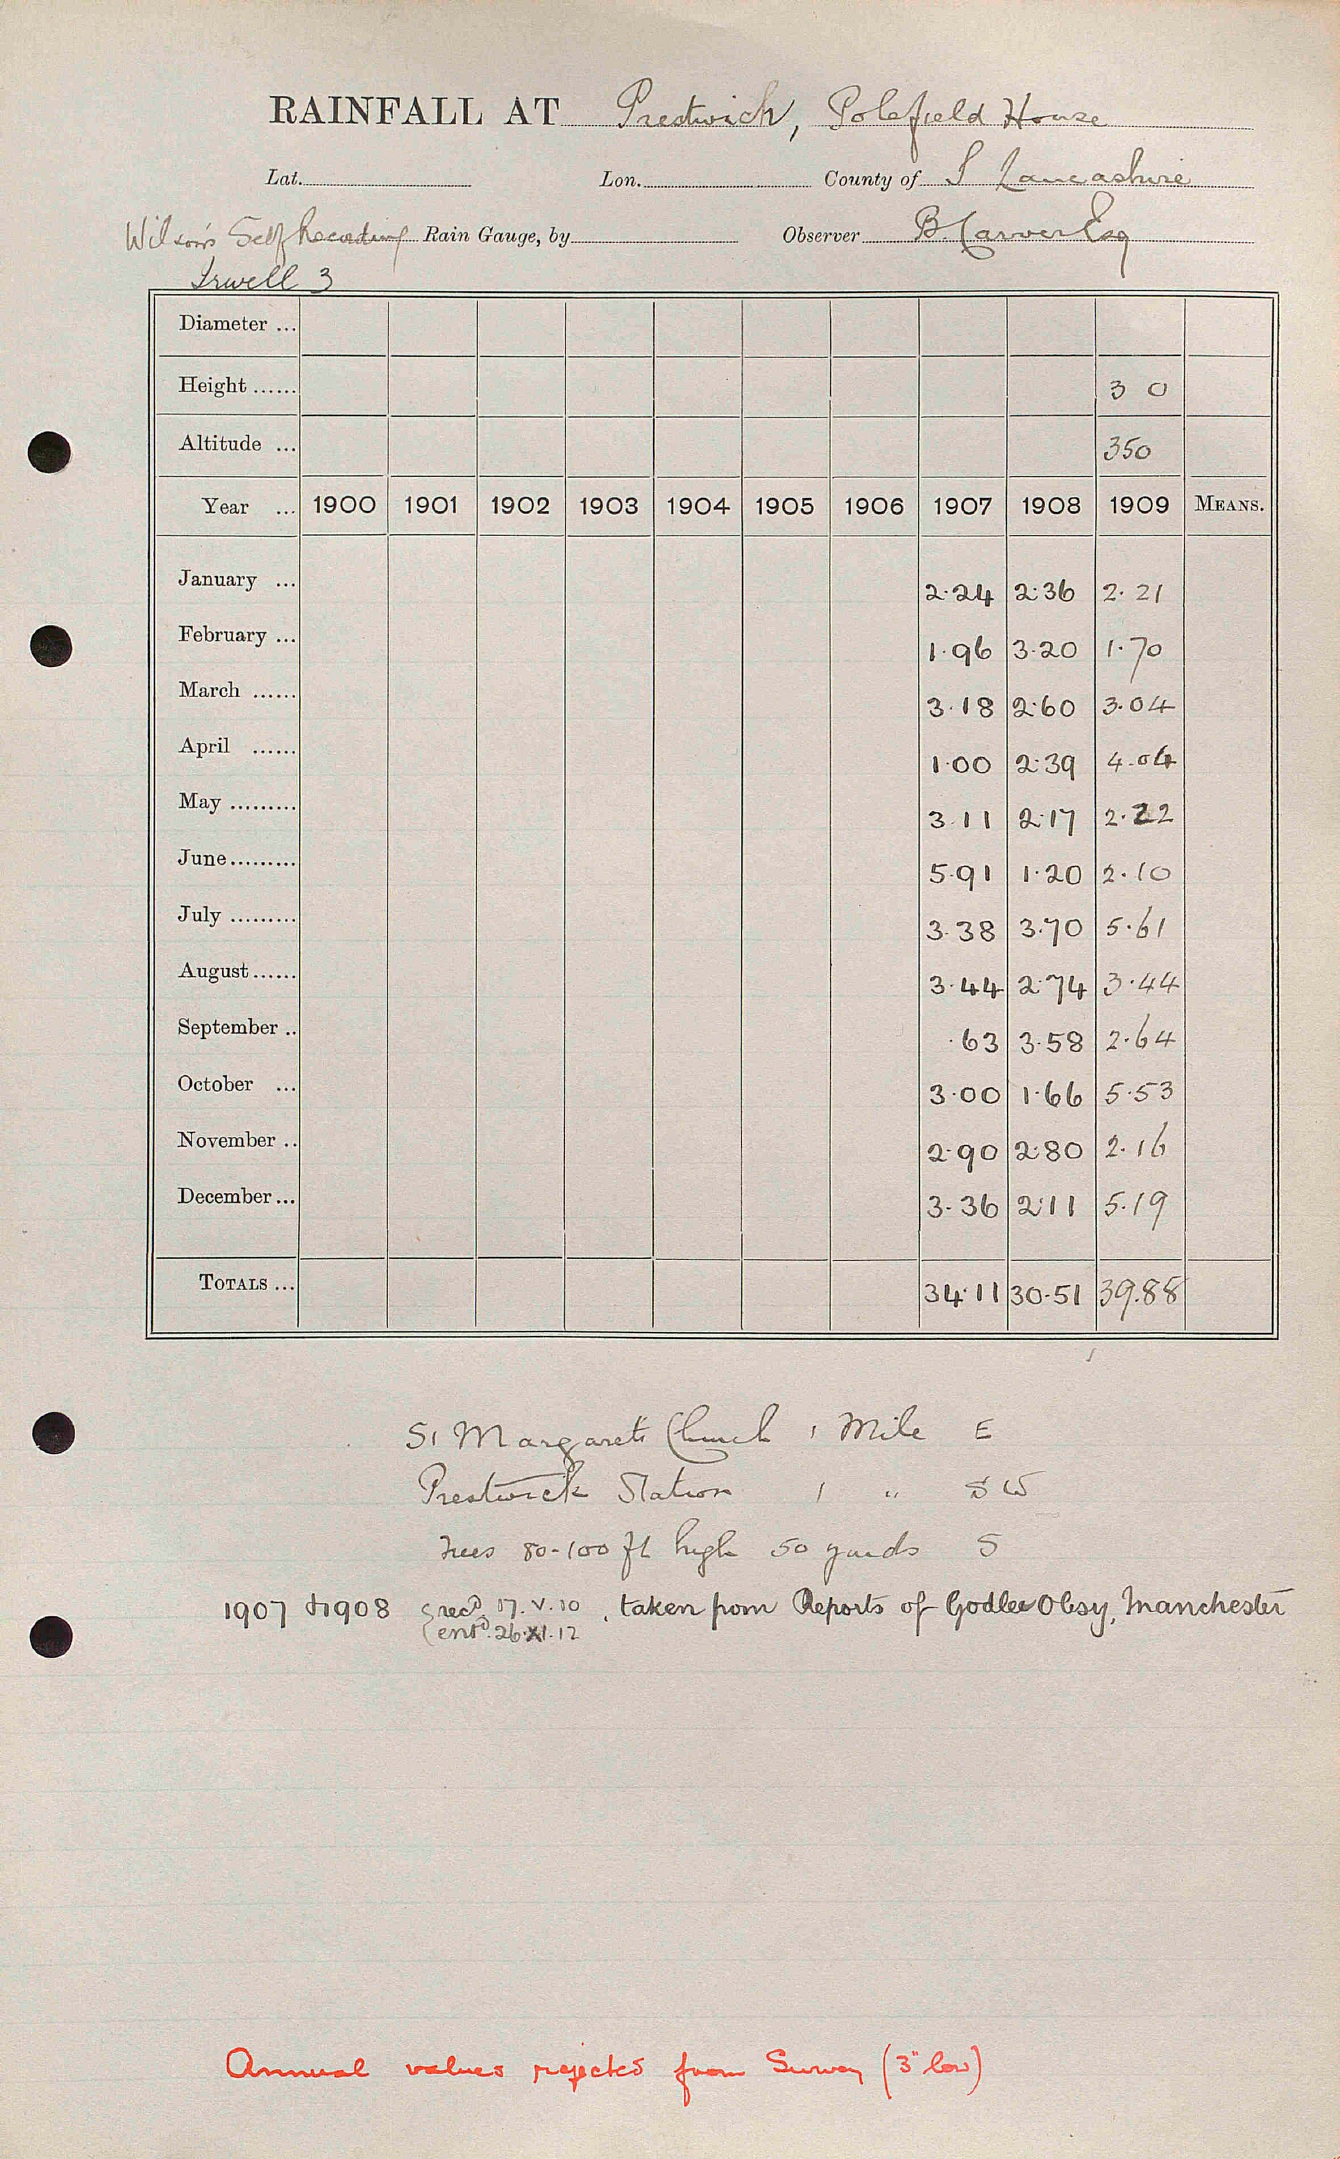 RAINFALL AT Prestwich, Polefield House
Lat. Lon. County of S Lancashire
Wilson's Self Recording Rain Gauge, by Observer B. Carver Esq
Irwell 3
Diameter ...
Height ...... 3 0
Altitude ... 350
Year ... 1900 1901 1902 1903 1904 1905 1906 1907 1908 1909 MEANS.
January ... 2.24 2.36 2.21
February ... 1.96 3.20 1.70
March ...... 3.18 2.60 3.04
April ...... 1.00 2.39 4.04
May ......... 3.11 2.17 2.22
June ......... 5.91 1.20 2.10
July ......... 3.38 3.70 5.61
August ...... 3.44 2.74 3.44
September .. .63 3.58 2.64
October ... 3.00 1.66 5.53
November .. 2.90 2.80 2.16
December ... 3.36 2.11 5.19
TOTALS ... 34.11 30.51 39.88
St Margaret's Church 1 Mile E
Prestwick Station 1 " SW
Trees 80-100 ft high 50 yards S
1907 & 1908 { recd. 17.V.10 , taken from Reports of Godlee Obsy, Manchester
entd. 26.XI.12
Annual values rejected from Survey (3" low)